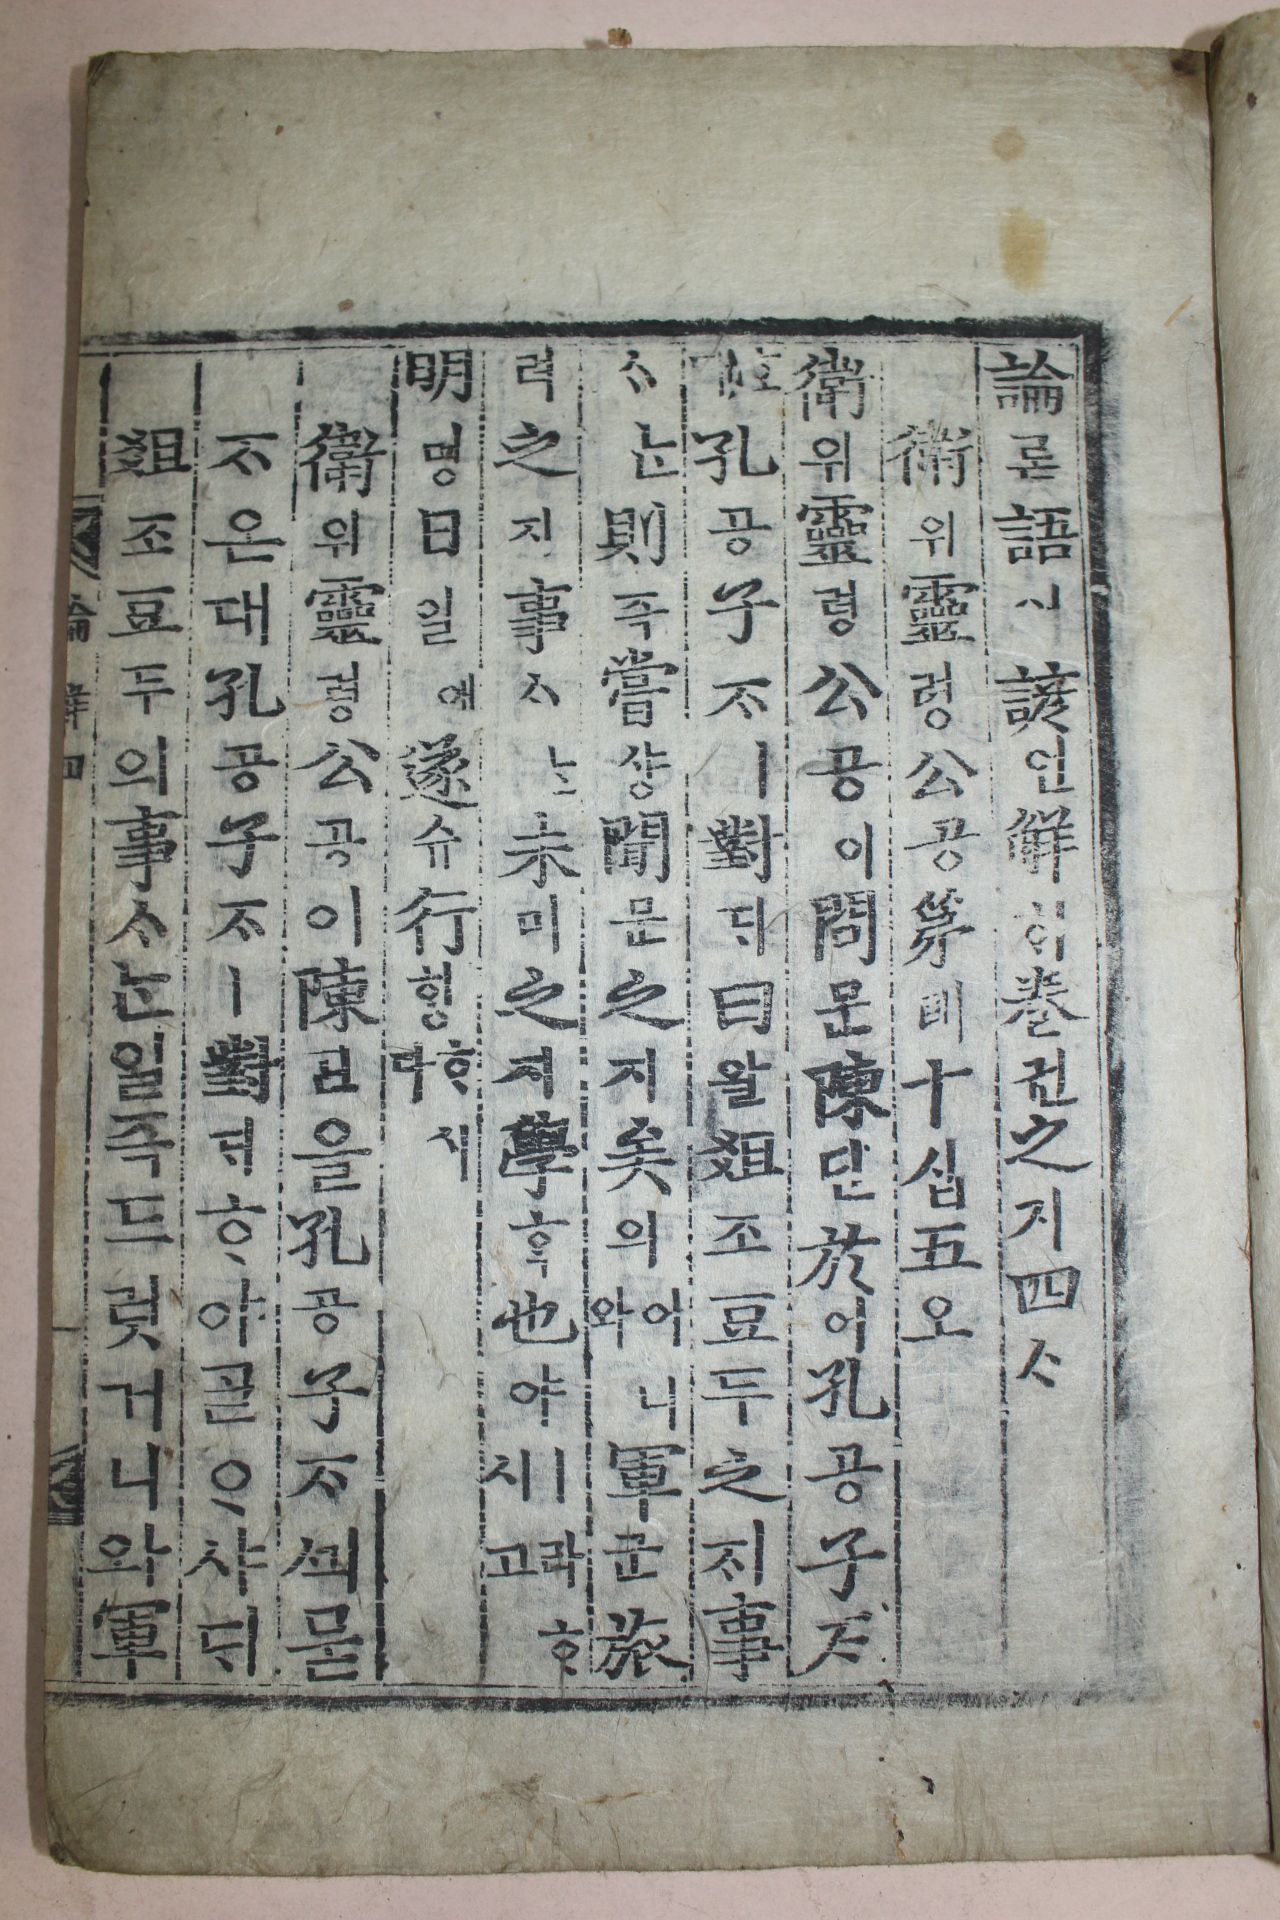 論론語어諺언解ᄒᆡ卷권之지四ᄉᆞ
衛위靈령公공第뎨十십五오
衛위靈령公공이問문陳딘於어孔공子ᄌᆞ
ᄒᆞᆫ대孔공子ᄌᆞㅣ對ᄃᆡ曰왈俎조豆두之지事
ᄉᆞᄂᆞᆫ則즉嘗샹聞문之지矣의어니와軍군旅
려之지事ᄉᆞᄂᆞᆫ未미之지學ᄒᆞᆨ也야ㅣ라ᄒᆞ시고
明명日일에遂슈行ᄒᆡᆼᄒᆞ시다
衛위靈령公공이陳딘을孔공子ᄌᆞᄭᅴ묻
ᄌᆞ온대孔공子ᄌᆞㅣ對ᄃᆡᄒᆞ야ᄀᆞᆯᄋᆞ샤ᄃᆡ
俎조豆두의事ᄉᆞᄂᆞᆫ일즉드럿거니와軍
論 解四